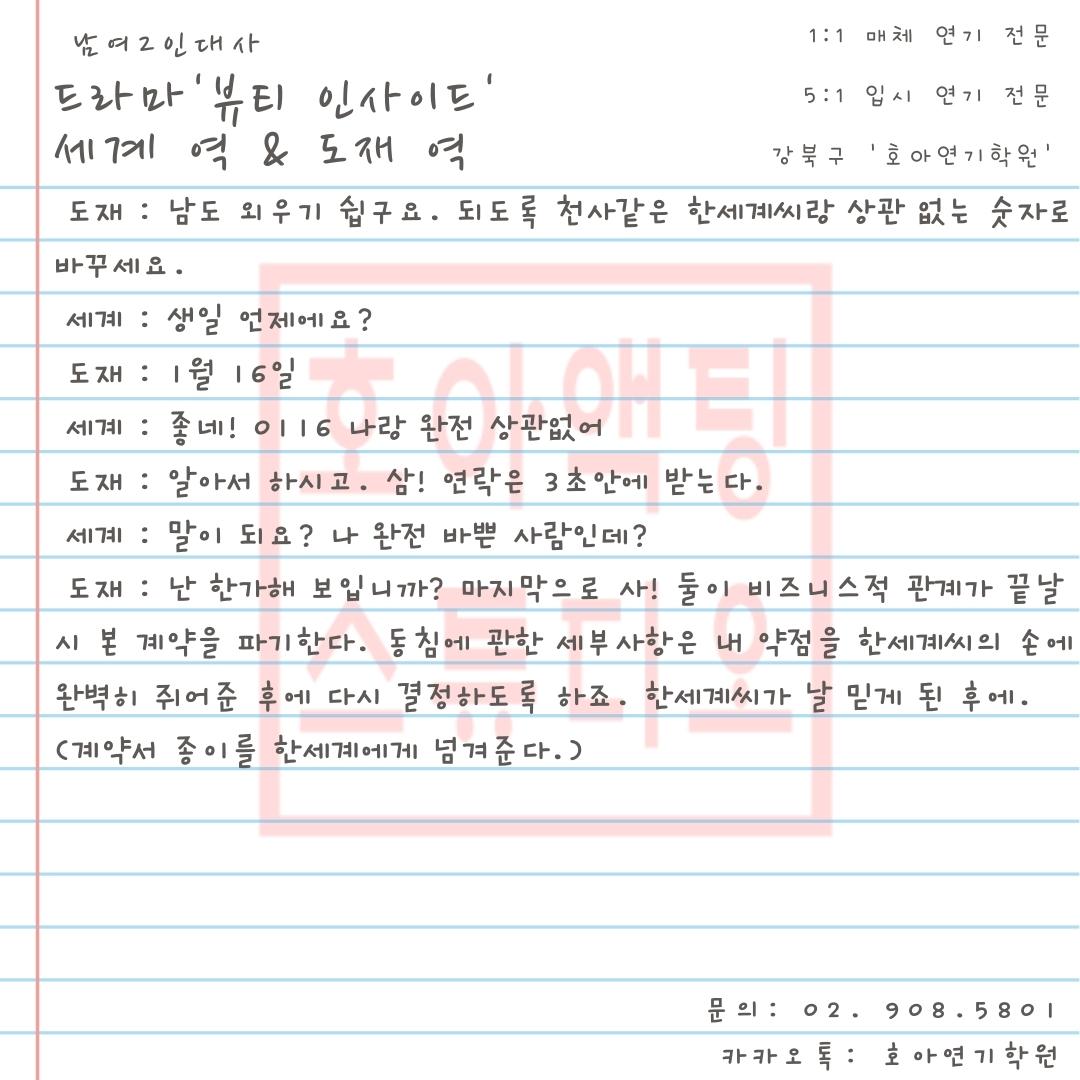 남여2인대사
드라마'뷰티 인사이드'
세계 역 & 도재 역
1:1 매체 연기 전문
5:1 입시 연기 전문
강북구 '호아연기학원'
도재 : 남도 외우기 쉽구요. 되도록 천사같은 한세계씨랑 상관 없는 숫자로
바꾸세요.
세계 : 생일 언제에요?
도재 : 1월 16일
세계 : 좋네! 0116 나랑 완전 상관없어
도재 : 알아서 하시고. 삼! 연락은 3초안에 받는다.
세계 : 말이 되요? 나 완전 바쁜 사람인데?
도재 : 난 한가해 보입니까? 마지막으로 사! 둘이 비즈니스적 관계가 끝날
시 본 계약을 파기한다. 동침에 관한 세부사항은 내 약점을 한세계씨의 손에
완벽히 쥐어준 후에 다시 결정하도록 하죠. 한세계씨가 날 믿게 된 후에.
(계약서 종이를 한세계에게 넘겨준다.)
호아액팅
스튜디오
문의: 02. 908.5801
카카오톡: 호아연기학원